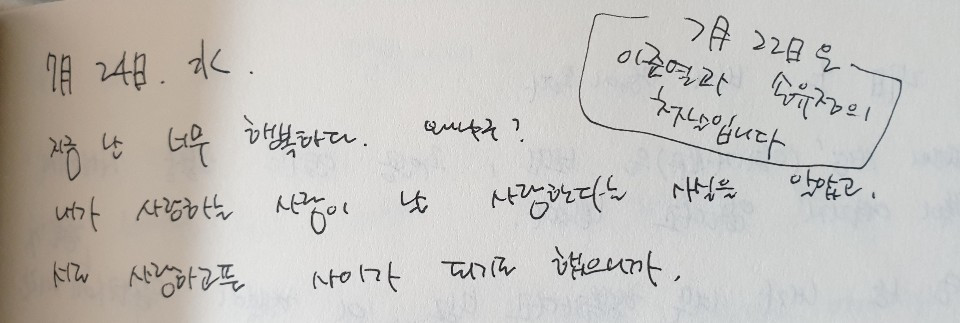 7月 24日. 水.
지금 난 너무 행복하다. 왜냐구?
내가 사랑하는 사람이 날 사랑한다는 사실을 알았고,
서로 사랑하고픈 사이가 되기로 했으니까.
7月 22日은
이준열과 송유정의
첫날입니다